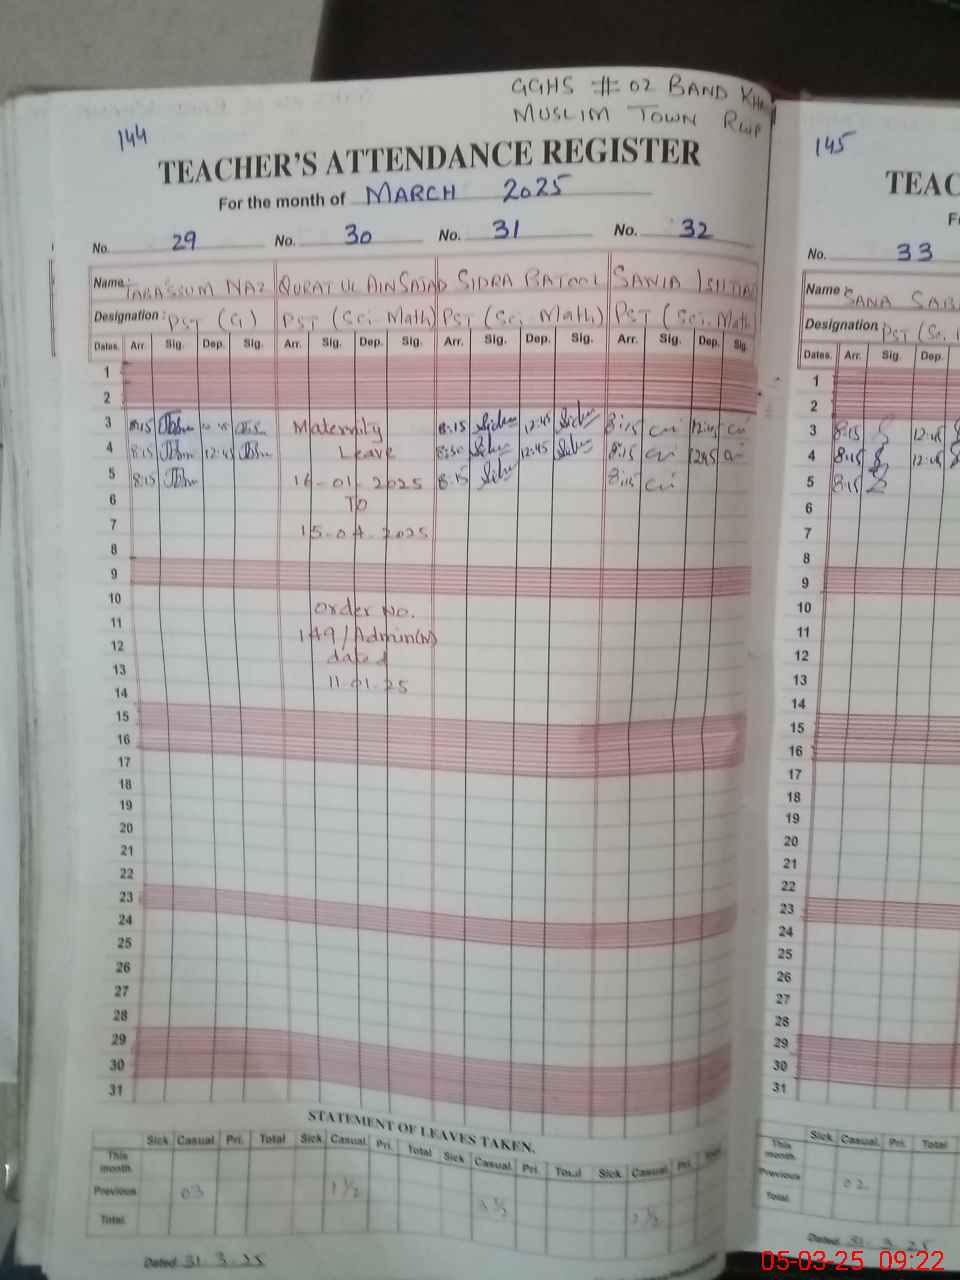 GGHS # 02 BAND
MUSLIM TOWN RWP
144
TEACHER'S ATTENDANCE REGISTER
For the month of MARCH 2025
No. 29 No. 30 No. 31 No. 32
Name: TABASSUM NAZ QURAT UL AIN SAJAD SIDRA BATOOL SAWIA ISHTIAQ
Designation: PST (G) PST (Sci. Math) PST (Sci. Math) PST (Sci. Math
Dates. Arr. Sig. Dep. Sig. Arr. Sig. Dep. Sig. Arr. Sig. Dep. Sig. Arr. Sig. Dep. Sig.
1
2
3 8:15 Maternity 8:15 12:45 8:15 12:45
4 8:15 12:45 Leave 8:30 12:45 8:15 12:45
5 8:15 16-01-2025 8:15 8:15
6 To
7 15-04-2025
8
9
10 order No.
11 149/Admin(W)
12 dated
13 11-01-25
14
15
16
17
18
19
20
21
22
23
24
25
26
27
28
29
30
31
STATEMENT OF LEAVES TAKEN.
Sick Casual Pri. Total Sick Casual Pri. Total Sick Casual Pri. Total Sick Casual Pri.
This month.
Previous 03 1 1/2
Total
Dated 31.3.25
145
TEAC
No. 33
Name: SANA
Designation PST (Sc.
Dates. Arr. Sig. Dep.
1
2
3 8:15 12:45
4 8:15 12:45
5 8:15
6
7
8
9
10
11
12
13
14
15
16
17
18
19
20
21
22
23
24
25
26
27
28
29
30
31
Sick Casual Pri. Total
This month.
Previous 02
Total
Dated 31.3.25
05-03-25 09:22